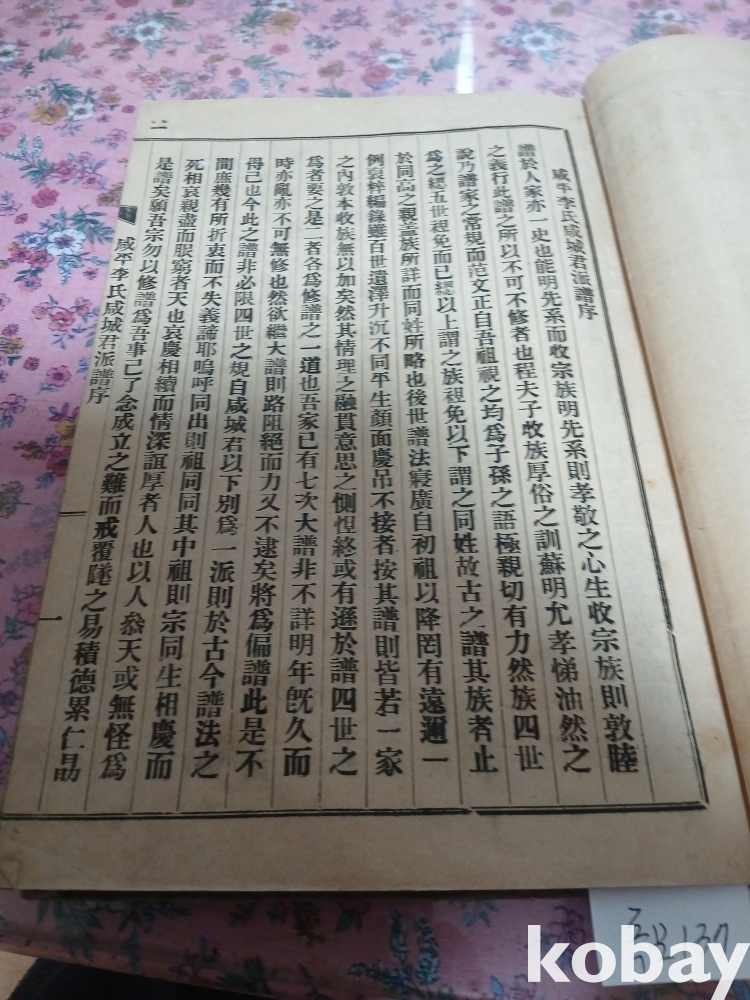 咸平李氏咸城君派譜序
譜於人家亦一史也能明先系而收宗族明先系則孝敬之心生收宗族則敦睦
之義行此譜之所以不可不修者也程夫子收族厚俗之訓蘇明允孝悌油然之
說乃譜家之常規而范文正自吾祖視之均爲子孫之語極親切有力然族四世
爲之緦五世袒免而已緦以上謂之族袒免以下謂之同姓故古之譜其族者止
於同高之親蓋族所詳而同姓所略也後世譜法寢廣自初祖以降罔有遠邇一
例裒粹編錄雖百世遺澤升沉不同平生顔面慶吊不接者按其譜則皆若一家
之內敦本收族無以加矣然其情理之融貫意思之惻怛終或有遜於譜四世之
爲者要之是二者各爲修譜之一道也吾家已有七次大譜非不詳明年旣久而
時亦亂亦不可無修也然欲繼大譜則路阻絕而力又不逮矣將爲偏譜此是不
得已也今此之譜非必限四世之規自咸城君以下別爲一派則於古今譜法之
間庶幾有所折衷而不失義諦耶嗚呼同出則祖同同其中祖則宗同生相慶而
死相哀親盡而服窮者天也哀慶相續而情深誼厚者人也以人叅天或無怪爲
是譜矣願吾宗勿以修譜爲吾事已了念成立之難而戒覆墜之易積德累仁勗
咸平李氏咸城君派譜序
一
二
kobay